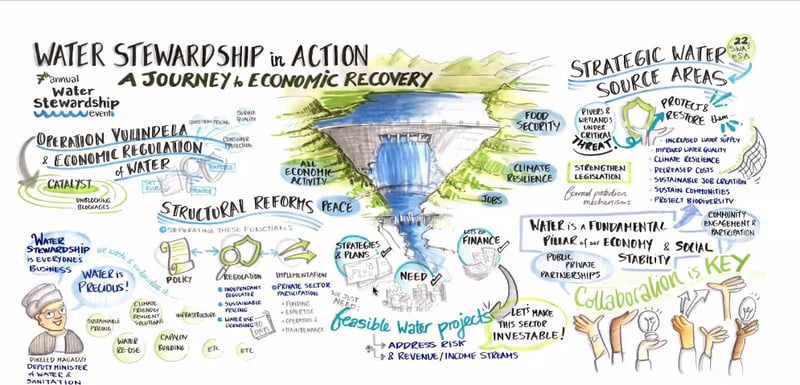 WATER STEWARDSHIP in ACTION
A JOURNEY to ECONOMIC RECOVERY
7th annual
Water
Stewardship
event
OPERATION VULINDELA
& ECONOMIC REGULATION
of WATER
SERVICE
QUALITY
CONSUMER
PROTECTION
SET
RULES
MONITOR
CATALYST
UNBLOCKING
BLOCKAGES
STRUCTURAL REFORMS
SEPARATING THESE FUNCTIONS
POLICY
REGULATION
INDEPENDANT
REGULATOR
SUSTAINABLE
PRICING
WATER USE
LICENSING
90
DAYS
IMPLEMENTATION
PRIVATE SECTOR
PARTICIPATION
- FUNDING
- EXPERTISE
- OPERATION &
MAINTENANCE
WATER
STEWARDSHIP
IS EVERYONE'S
BUSINESS
WATER IS
PRECIOUS!
SUSTAINABLE
PRICING
CLIMATE
FRIENDLY
RESILIENT
SOLUTIONS
INFRASTRUCTURE
WATER
RE-USE
CAPACITY
BUILDING
ETC
ETC
DIKELED MAGADZI
DEPUTY MINISTER
of WATER &
SANITATION
ALL
ECONOMIC
ACTIVITY
PEACE
FOOD
SECURITY
CLIMATE
RESILIENCE
JOBS
STRATEGIES
& PLANS
NEED
LOTS OF
FINANCE
WE JUST
NEED
feasible Water projects
ADDRESS RISK
& REVENUE/INCOME STREAMS
LET'S MAKE
THIS SECTOR
INVESTABLE!
STRATEGIC WATER
SOURCE AREAS
22
SWSA's
RSA
RIVERS &
WETLANDS
UNDER
CRITICAL
THREAT
PROTECT &
RESTORE them
STRENGTHEN
LEGISLATION
formal protection
mechanisms
• INCREASED WATER SUPPLY
• IMPROVED WATER QUALITY
• CLIMATE RESILIENCE
• DECREASED COSTS
• SUSTAINABLE JOB CREATION
• SUSTAIN COMMUNITIES
• PROTECT BIODIVERSITY
WATER is A FUNDAMENTAL
PILLAR of our ECONOMY & SOCIAL
STABILITY
COMMUNITY
ENGAGEMENT &
PARTICIPATION
PUBLIC PRIVATE
PARTNERSHIPS
Collaboration is KEY